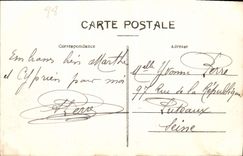 94
CARTE POSTALE
Correspondance
Adresse
Embrasse bien Marthe
et Cyprien pour moi
Perre
Melle Yvonne Perre
97 Rue de la République
Puteaux
Seine